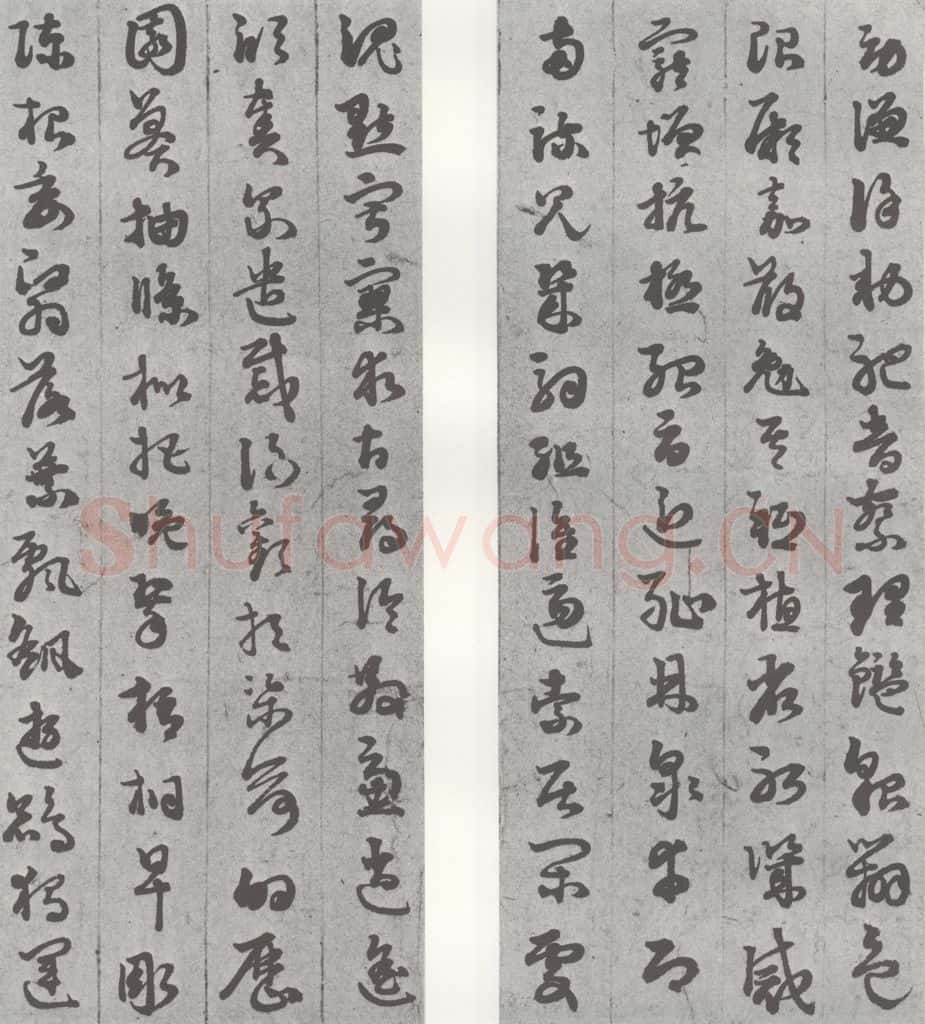 勞謙謹勑聆音察理鑑皃辯色
貽厥嘉猷勉其祗植省躬譏誡
寵增抗極殆辱近恥林皋幸即
兩疏見機解組誰逼索居閑處
沉默寂寥求古尋論散慮逍遙
欣奏累遣慼謝歡招渠荷的歷
園莽抽條枇杷晚翠梧桐早彫
陳根委翳落葉飄颻遊鵾獨運
Shufawang.CN